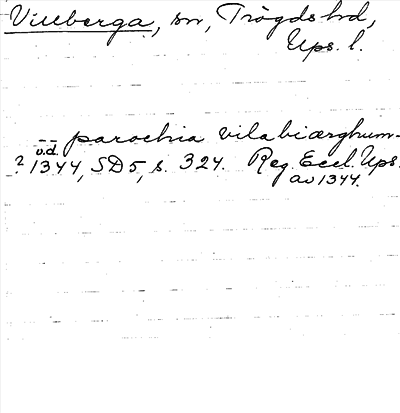 Villberga, sn, Trögds hd,
Ups. l.
-- parochia vilabiærghum -
o.d.
? 1344, SD 5, s. 324. Reg. Eccl. Ups.
av 1344.